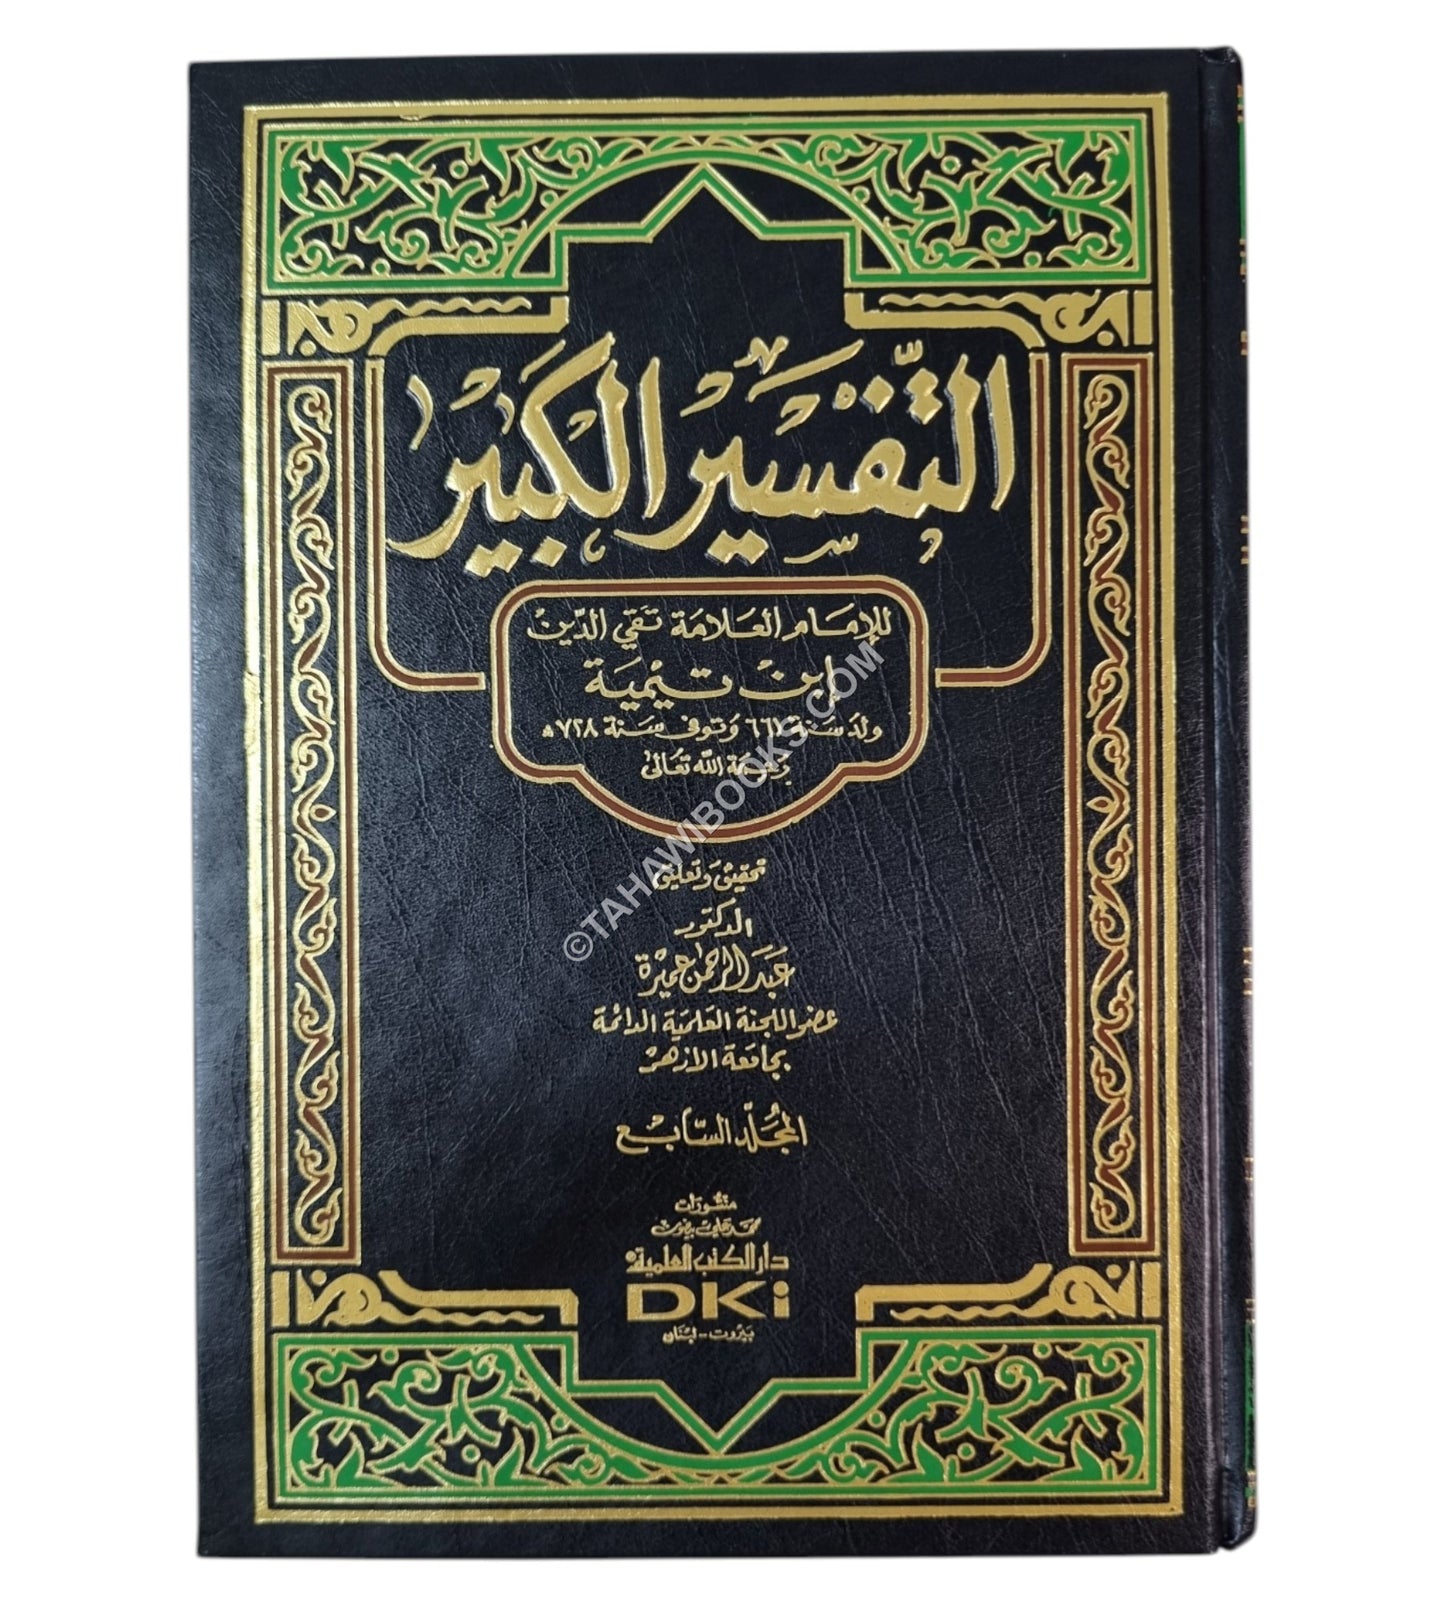 التفسير الكبير
للإمام العلامة تقي الدين
ابن تيمية
ولد سنة ٦٦١ وتوفى سنة ٧٢٨ه
رحمة الله تعالى
تحقيق وتعليق
الدكتور
عبد الرحمن عميرة
عضو اللجنة العلمية الدائمة
بجامعة الأزهر
المجلد السابع
منشورات
محمد علي بيضون
دار الكتب العلمية
DKi
بيروت - لبنان
©TAHAWIBOOKS.COM